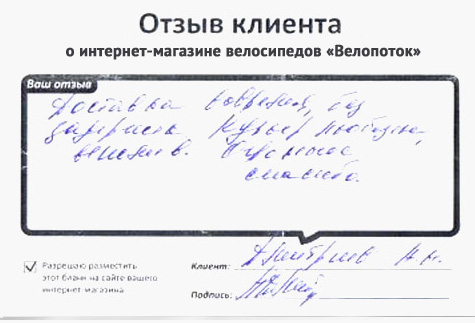 Отзыв клиента
о интернет-магазине велосипедов «Велопоток»
Ваш отзыв
Доставка вовремя, без
задержек Курьер любезен,
вежлив. Огромное
спасибо.
Разрешаю разместить
этот бланк на сайте вашего
интернет магазина
Клиент: Дмитриев Н.Н.
Подпись: